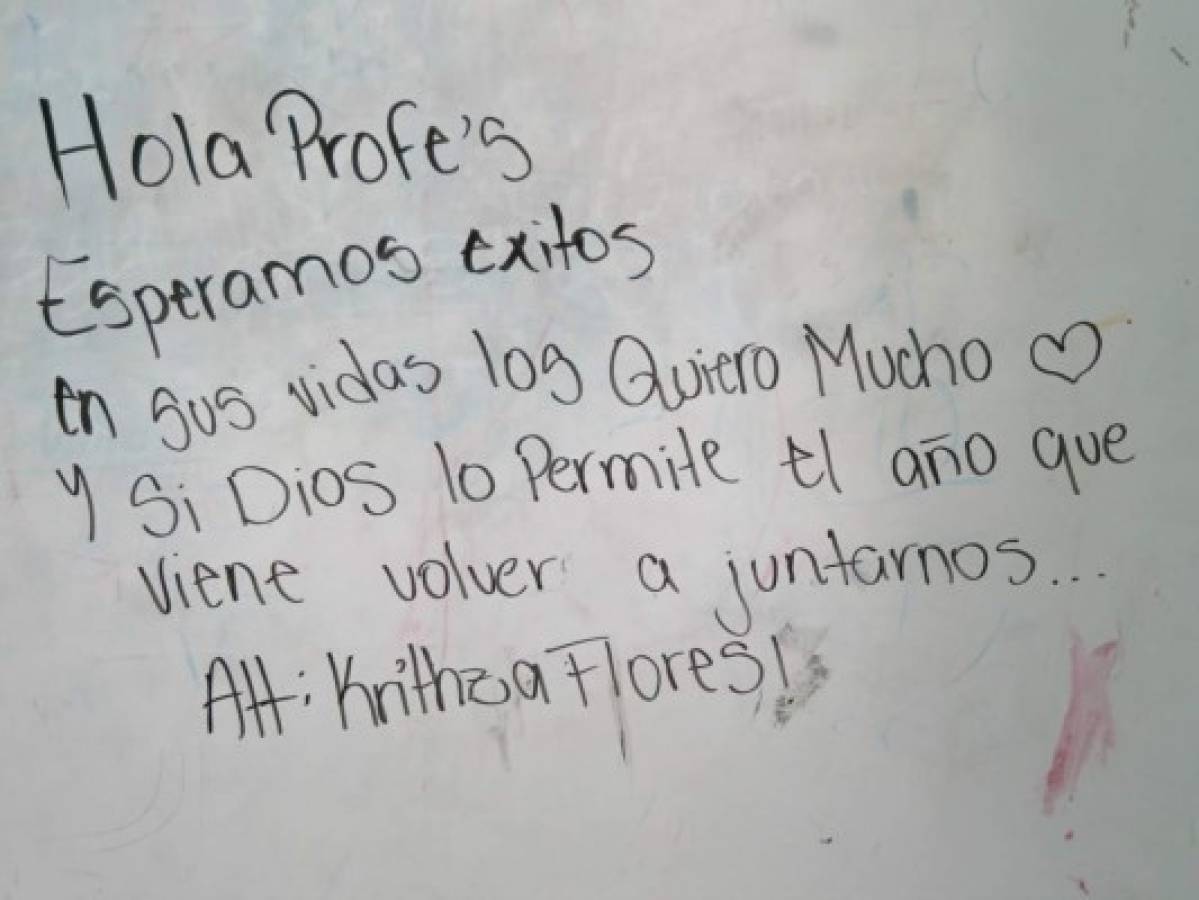 Hola Profe's
Esperamos exitos
en sus vidas los Quiero Mucho ♡
Y Si Dios lo Permite el año que
viene volver a juntarnos...
Att: Krithza Flores